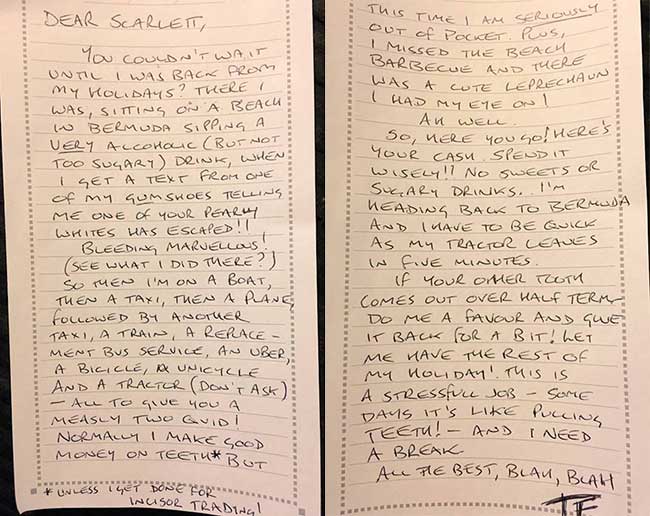 DEAR SCARLETT,
YOU COULDN'T WAIT
UNTIL I WAS BACK FROM
MY HOLIDAYS? THERE I
WAS, SITTING ON A BEACH
IN BERMUDA SIPPING A
VERY ALCOHOLIC (BUT NOT
TOO SUGARY) DRINK, WHEN
I GET A TEXT FROM ONE
OF MY GUMSHOES TELLING
ME ONE OF YOUR PEARLY
WHITES HAS ESCAPED!!
BLEEDING MARVELLOUS!
(SEE WHAT I DID THERE?)
SO THEN I'M ON A BOAT,
THEN A TAXI, THEN A PLANE,
FOLLOWED BY ANOTHER
TAXI, A TRAIN, A REPLACE-
MENT BUS SERVICE, AN UBER,
A BICICLE, A UNICYCLE
AND A TRACTOR (DON'T ASK)
- ALL TO GIVE YOU A
MEASLY TWO QUID!
NORMALLY I MAKE GOOD
MONEY ON TEETH* BUT
*UNLESS I GET DONE FOR
INCISOR TRADING!
THIS TIME I AM SERIOUSLY
OUT OF POCKET. PLUS,
I MISSED THE BEACH
BARBECUE AND THERE
WAS A CUTE LEPRECHAUN
I HAD MY EYE ON!
AH WELL.
SO, HERE YOU GO! HERE'S
YOUR CASH. SPEND IT
WISELY!! NO SWEETS OR
SUGARY DRINKS. I'M
HEADING BACK TO BERMUDA
AND I HAVE TO BE QUICK
AS MY TRACTOR LEAVES
IN FIVE MINUTES.
IF YOUR OTHER TOOTH
COMES OUT OVER HALF TERM
DO ME A FAVOUR AND GLUE
IT BACK FOR A BIT! LET
ME HAVE THE REST OF
MY HOLIDAY! THIS IS
A STRESSFULL JOB - SOME
DAYS IT'S LIKE PULLING
TEETH! - AND I NEED
A BREAK
ALL THE BEST, BLAH, BLAH
TF